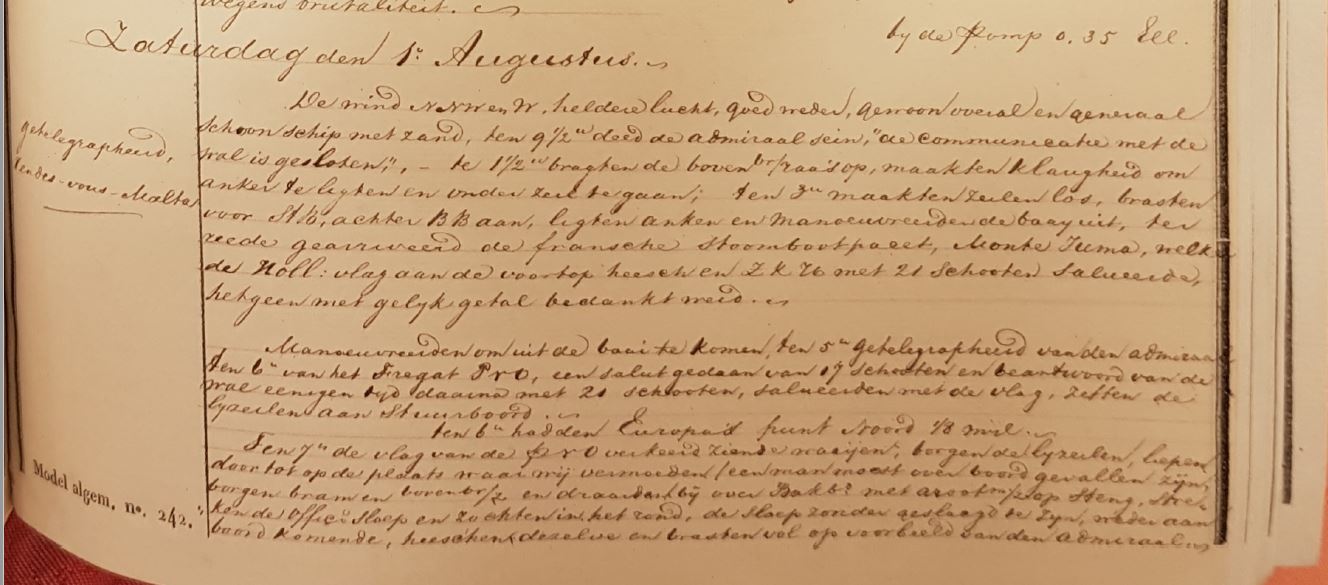 wegens brutaliteit.
by de Pomp 0.35 Ell.
Zaturdag den 1e Augustus.
De wind NNW en W. heldere lucht, goed weder, gewoon overal en generaal
schoon schip met zand, ten 9 1/2 u deed de admiraal sein, "de communicatie met de
wal is gesloten", - te 1 1/2 u bragten de boven br/raa's op, maakten klaarigheid om
anker te ligten en onder zeil te gaan; ten 3 u maakten zeilen los, brasten
voor StB, achter BB aan, ligten anker en manoeuvreerden de baay uit, ter
reede gearriveerd de fransche stoomboot paket, Monte Zuma, welke
de Holl: vlag aan de voortop heesch en Z K H met 21 schooten salueerde,
hetgeen met gelyk getal bedankt werd.
getelegrapheerd,
rendes-vous-Malta
Manoeuvreerden om uit de baai te komen, ten 5 u getelegrapheerd van den admiraal
ten 6 u van het Fregat Pro, een salut gedaan van 17 schooten en beantwoord van de
wal eenigen tyd daarna met 21 schooten, salueerden met de vlag, zetten de
lyzeilen aan Stuurboord.
ten 6 u hadden Europa's punt Noord 1/8 mijl.
Ten 7 u de vlag van de Pro verkeerd ziende waaijen, borgen de lyzeilen, liepen
door tot op de plaats waar wij vermoeden (een man moest over boord gevallen zijn,
borgen bram en bovenbr/z en draaiden bij over Bakbd met groot m/z op Steng, stre-
ken de Offics sloep en zochten in het rond, de sloep zonder geslaagd te zyn, weder aan
boord komende, heeschen dezelve en brasten vol op voorbeeld van den admiraal
Model algem. no. 242.